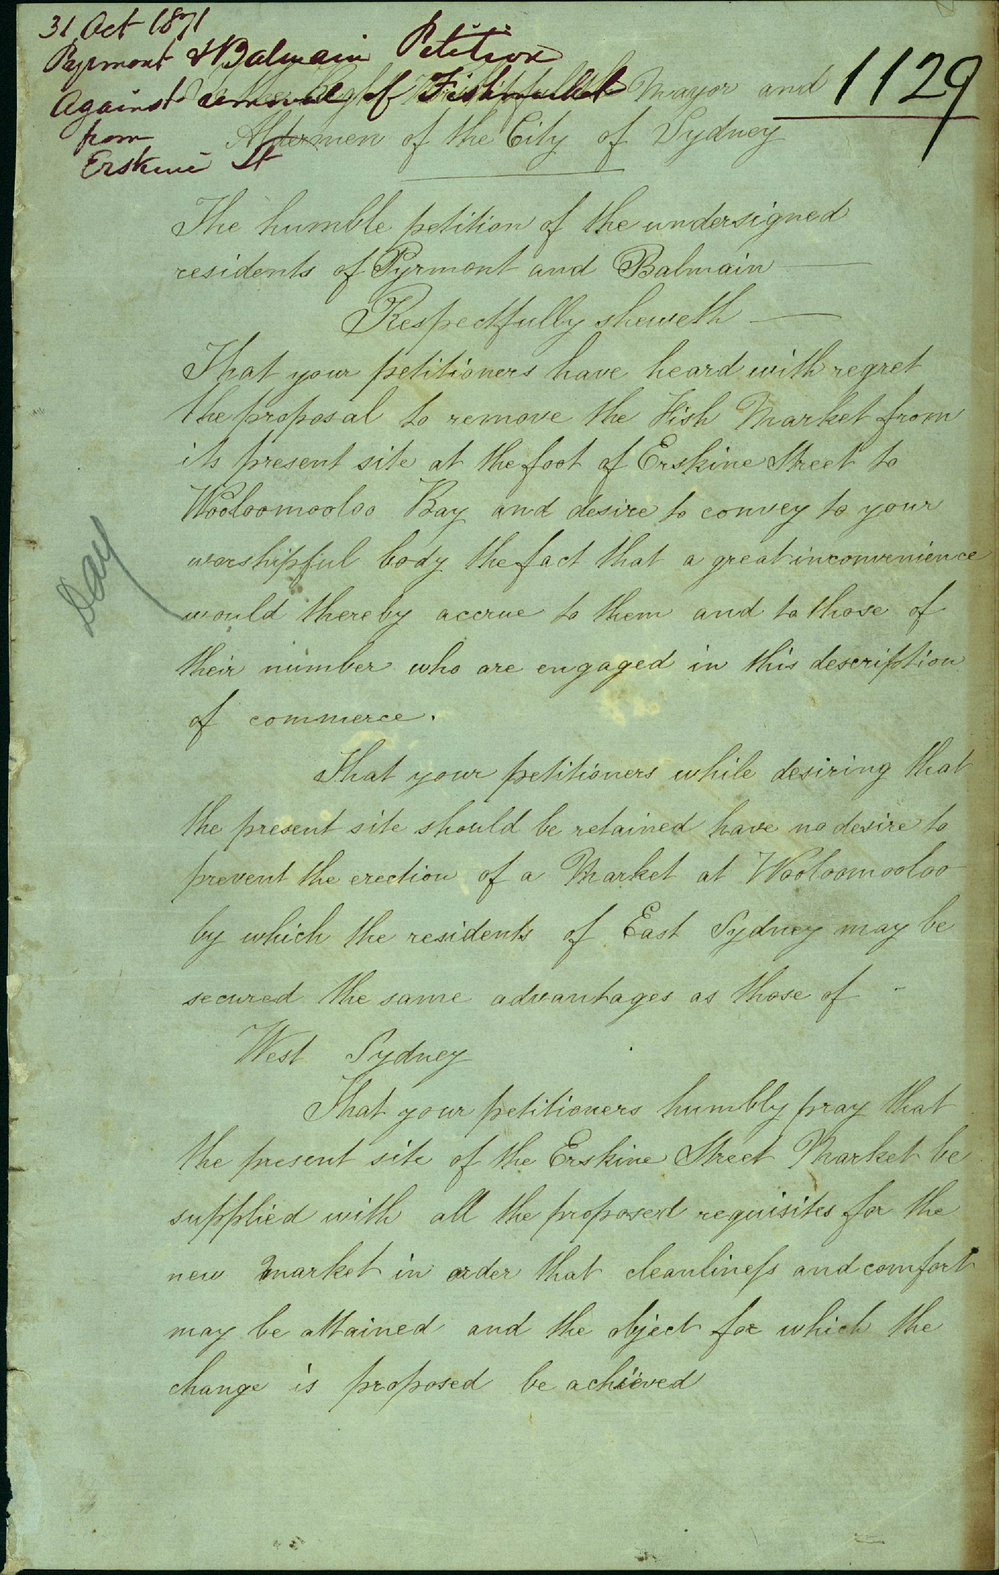 31 Oct 1871
Pyrmont & Balmain Petition
Against removal of Fishmarket
from
Erskine St
1129
Mayor and
Aldermen of the City of Sydney
The humble petition of the undersigned
residents of Pyrmont and Balmain
Respectfully sheweth
That your petitioners have heard with regret
the proposal to remove the Fish Market from
its present site at the foot of Erskine Street to
Wooloomooloo Bay and desire to convey to your
worshipful body the fact that a great inconvenience
would thereby accrue to them and to those of
their number who are engaged in this description
of commerce.
Day
That your petitioners while desiring that
the present site should be retained have no desire to
prevent the erection of a Market at Wooloomooloo
by which the residents of East Sydney may be
secured the same advantages as those of
West Sydney
That your petitioners humbly pray that
the present site of the Erskine Street Market be
supplied with all the proposed requisites for the
new market in order that cleanliness and comfort
may be attained and the object for which the
change is proposed be achieved